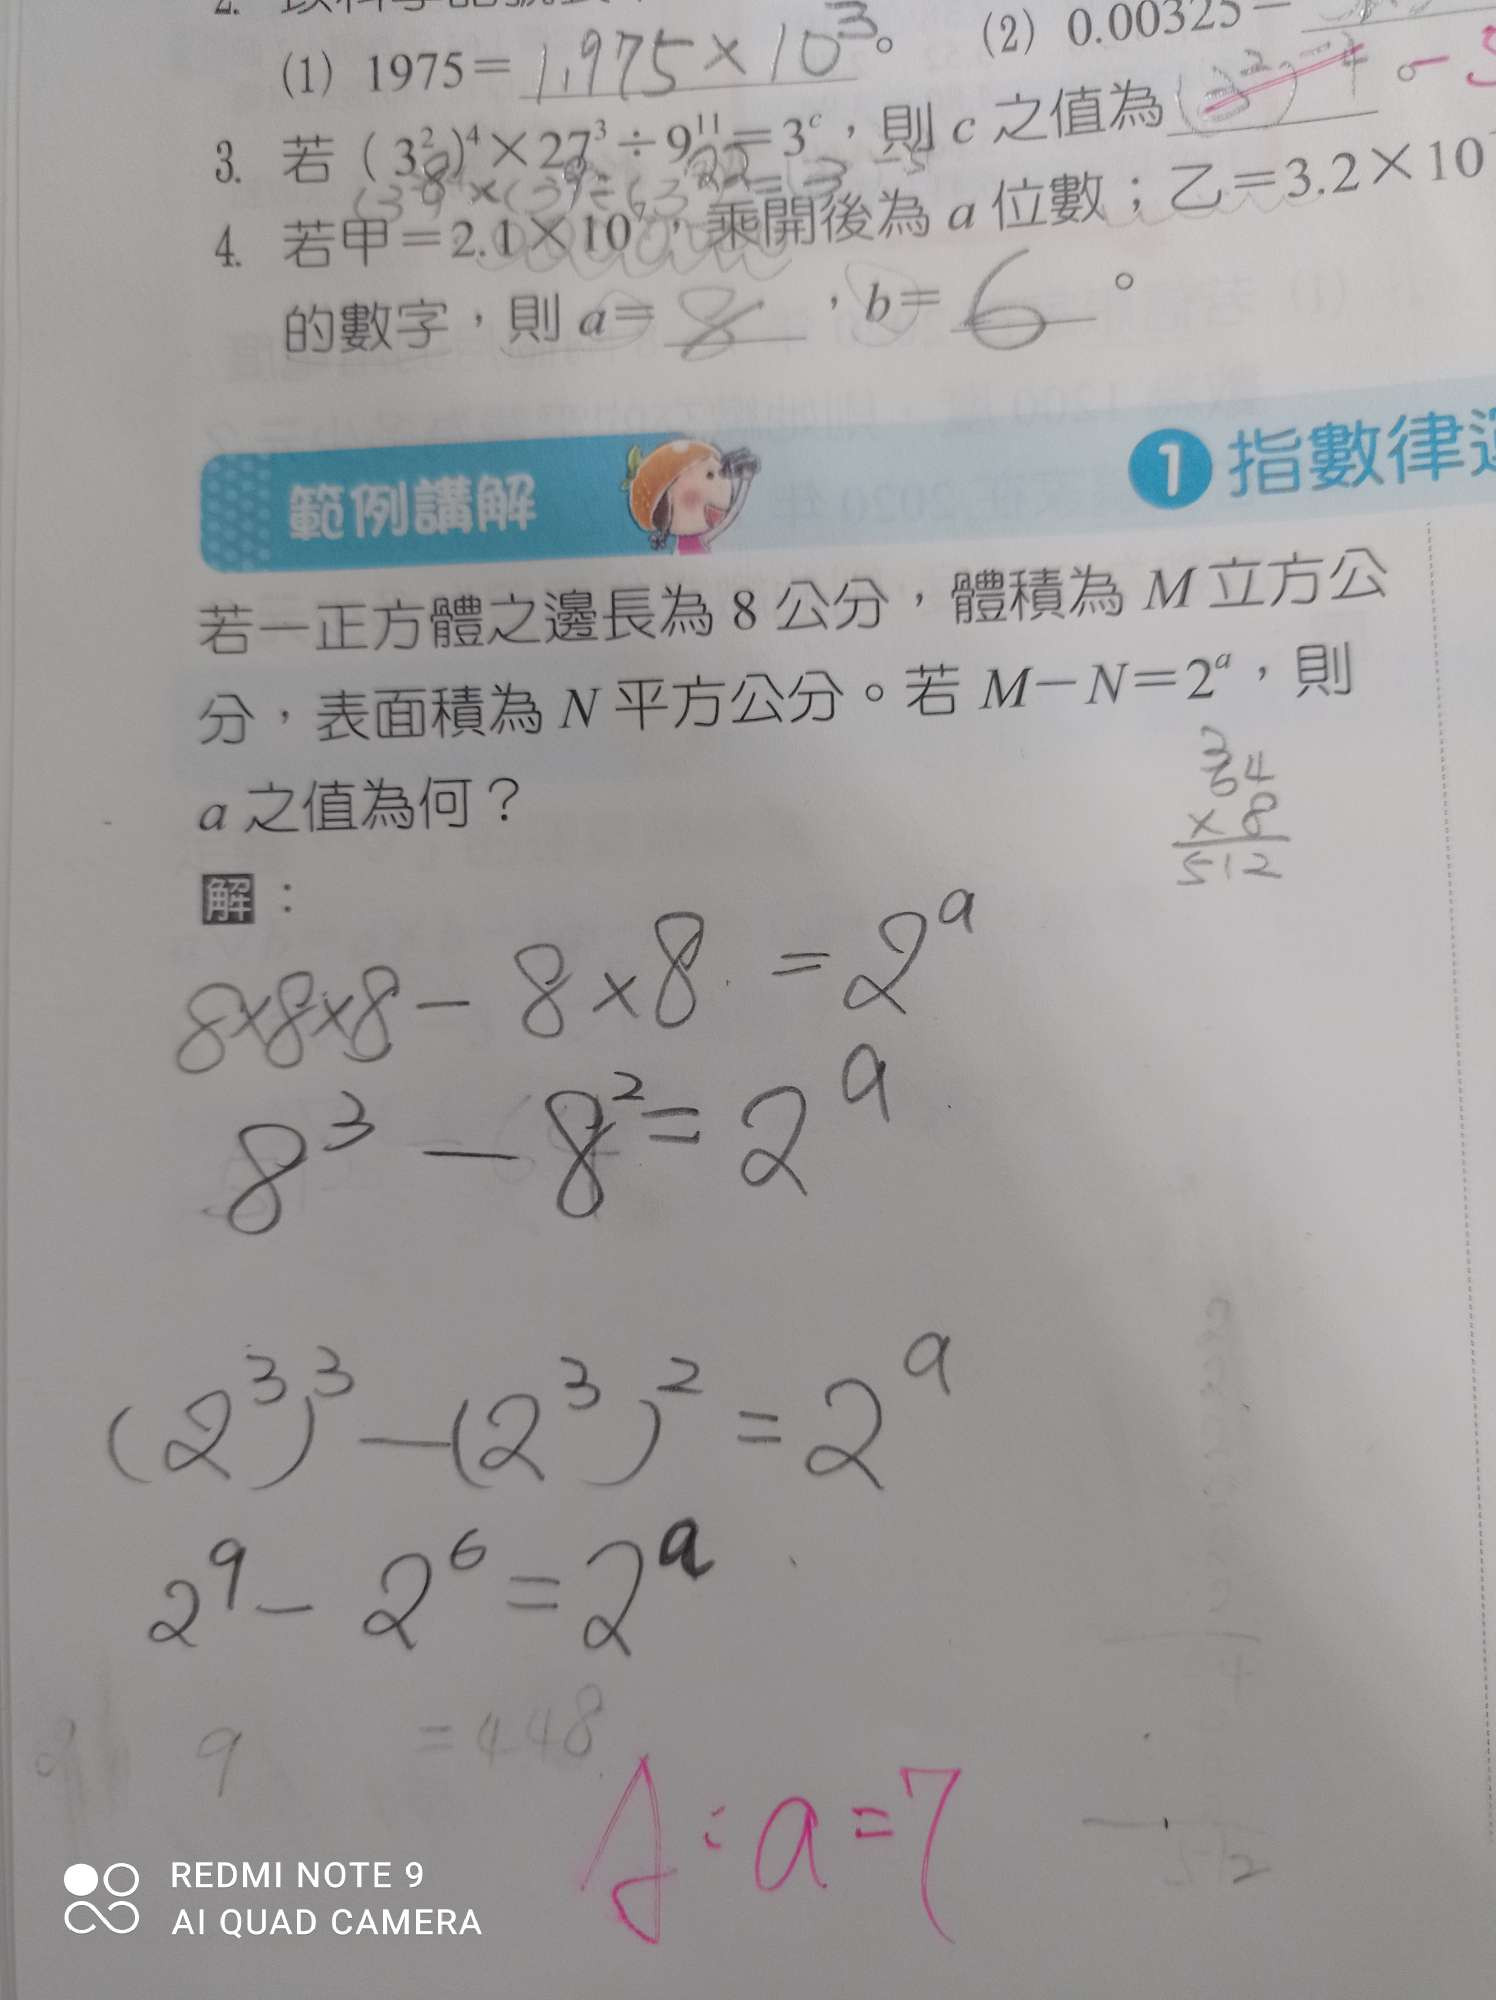 (1) 1975=1.975×10³。 (2) 0.00325=
3. 若 (3²)⁴×27³÷9¹¹=3ᶜ,則 c 之值為
4. 若甲=2.1×10,乘開後為 a 位數;乙=3.2×10
的數字,則 a=8,b=6。
範例講解 1 指數律
若一正方體之邊長為 8 公分,體積為 M 立方公
分,表面積為 N 平方公分。若 M-N=2ᵃ,則
a 之值為何?
64
×8
512
解:
8×8×8-8×8=2ᵃ
8³-8²=2ᵃ
(2³)³-(2³)²=2ᵃ
2⁹-2⁶=2ᵃ
9 =448
A:a=7
512
REDMI NOTE 9
AI QUAD CAMERA